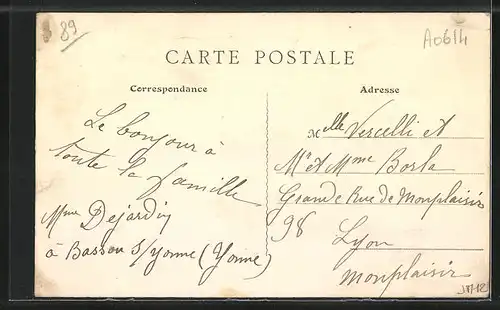 89
A0614
CARTE POSTALE
Correspondance
Adresse
Le bonjour à
toute la famille
Mme Dejardin
à Bassou S/yonne (Yonne)
Melle Vercelli et
Mr et Mme Borla
Grande Rue de Monplaisir
98
Lyon
Monplaisir